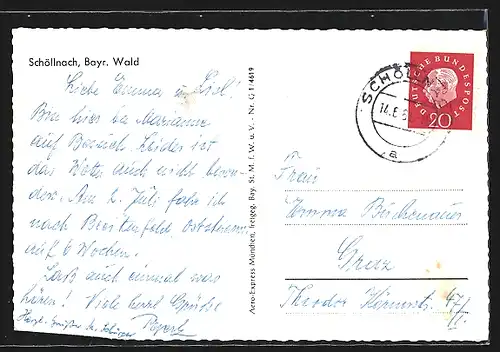 Schöllnach, Bayr. Wald
Liebe Emma u.
Bin hier bei Marianne
auf Besuch. Leider ist
das Wetter auch nicht beson-
ders. Am 2. Juli fahr ich
nach Breitenfeld, Oststeierm.
auf 6 Wochen.
Laßt auch einmal was
hören! Viele herzl. Grüße
Herzl. Grüße
Aero-Express München, freigeg. Bay. St. M. f. W. u. V. - Nr. G 1/4619
DEUTSCHE BUNDESPOST
20
SCHÖLLN
14.6.
a
Frau
Emma Buchenauer
Graz
Theodor Körnerstr. 47/